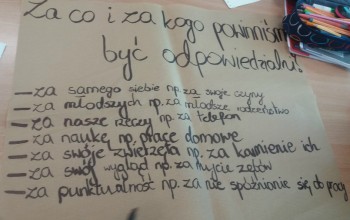 Za co i za kogo powinniśm
być odpowiedzialni?
– za samego siebie np. za swoje czyny
– za młodszych np. za młodsze rodzeństwo
– za nasze rzeczy np. za telefon
– za naukę np. prace domowe
– za swoje zwierzęta np. za karmienie ich
– za swój wygląd np. za mycie zębów
– za punktualność np. za nie spóźnianie się do pracy